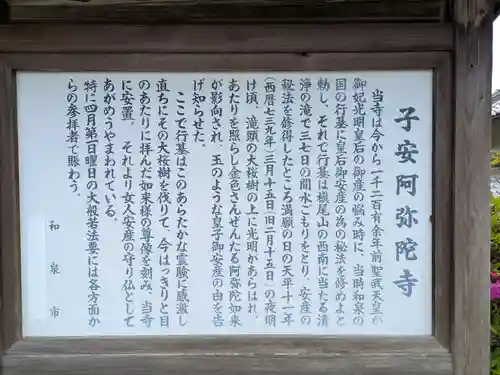 子安阿弥陀寺
当寺は今から一千二百有余年前聖武天皇が
御妃光明皇后の御産の悩み時に、当時和泉の
国の行基に皇后御安産の為の秘法を修めよと
勅し、それで行基は槇尾山の西南に当たる清
浄の滝で三七日の間水ごもりをとり、安産の
秘法を修得したところ満願の日の天平十一年
(西暦七三九年)三月十五日(旧二月十五日)の夜明
け頃、滝頭の大桜樹の上に光明があらはれ、
あたりを照らし金色さんぜんたる阿弥陀如来
が影向され、玉のような皇子御安産の由を告
げ知らせた。
ここで行基はこのあらたかな霊験に感激し
直ちにその大桜樹を伐りて、今はっきりと目
のあたりに拝んだ如来様の尊像を刻み、当寺
に安置。それより女人安産の守り仏として
あがめうやまわれている。
特に四月第二日曜日の大般若法要には各方面か
らの参拝者で賑わう。
和泉市